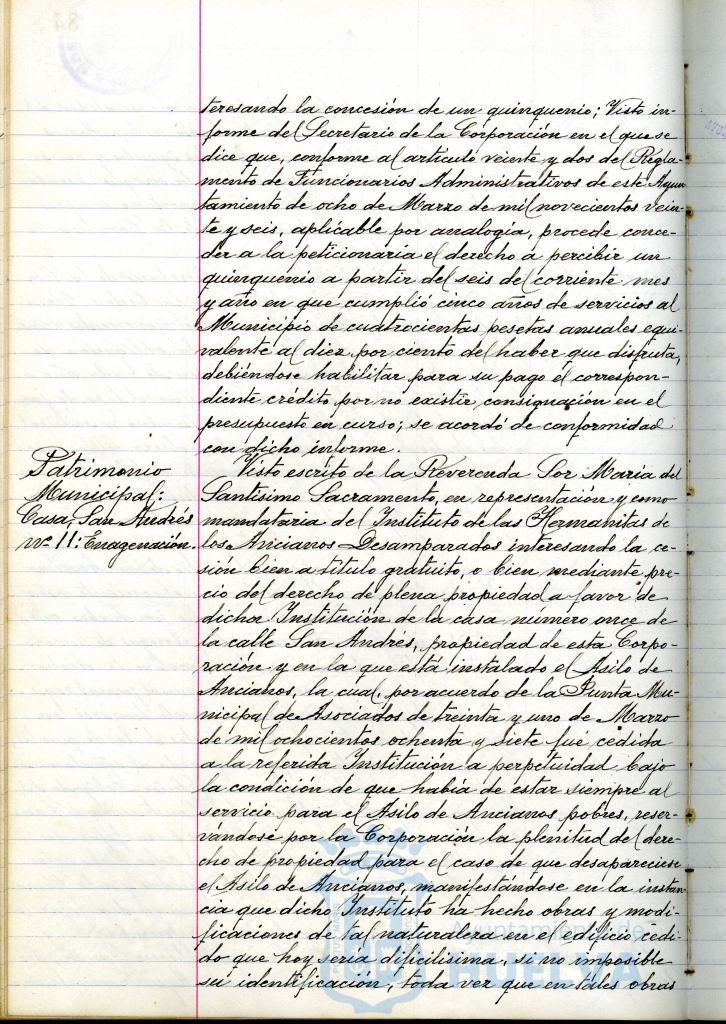 teresando la concesión de un quinquenio; Visto in-
forme del Secretario de la Corporación en el que se
dice que, conforme al articulo veinte y dos del Regla-
mento de Funcionarios Administrativos de este Ayun-
tamiento de ocho de Marzo de mil novecientos vein-
te y seis, aplicable por analogía, procede conce-
der a la peticionaria el derecho a percibir un
quinquenio a partir del seis del corriente mes
y año en que cumplió cinco años de servicios al
Municipio de cuatrocientas pesetas anuales equi-
valente al diez por ciento del haber que disfruta,
debiéndose habilitar para su pago el correspon-
diente crédito por no existir consignación en el
presupuesto en curso; se acordó de conformidad
con dicho informe.
Patrimonio
Municipal:
Casa, San Andrés
nº 11: Enagenación.
Visto escrito de la Reverenda Sor Maria del
Santisimo Sacramento, en representación y como
mandataria del Instituto de las Hermanitas de
los Ancianos Desamparados interesando la ce-
sión bien a título gratuito, o bien mediante pre-
cio del derecho de plena propiedad a favor de
dicha Institución de la casa número once de
la calle San Andrés, propiedad de esta Corpo-
ración y en la que está instalado el Asilo de
Ancianos, la cual, por acuerdo de la Junta Mu-
nicipal de Asociados de treinta y uno de Marzo
de mil ochocientos ochenta y siete fué cedida
a la referida Institución a perpetuidad bajo
la condición de que había de estar siempre al
servicio para el Asilo de Ancianos pobres, reser-
vándose por la Corporación la plenitud del dere-
cho de propiedad para el caso de que desapareciese
el Asilo de Ancianos, manifestándose en la instan-
cia que dicho Instituto ha hecho obras y modi-
ficaciones de tal naturaleza en el edificio cedi-
do que hoy seria dificilisima, si no imposible
su identificación, toda vez que en tales obras
Ayuntamiento de
HUELVA